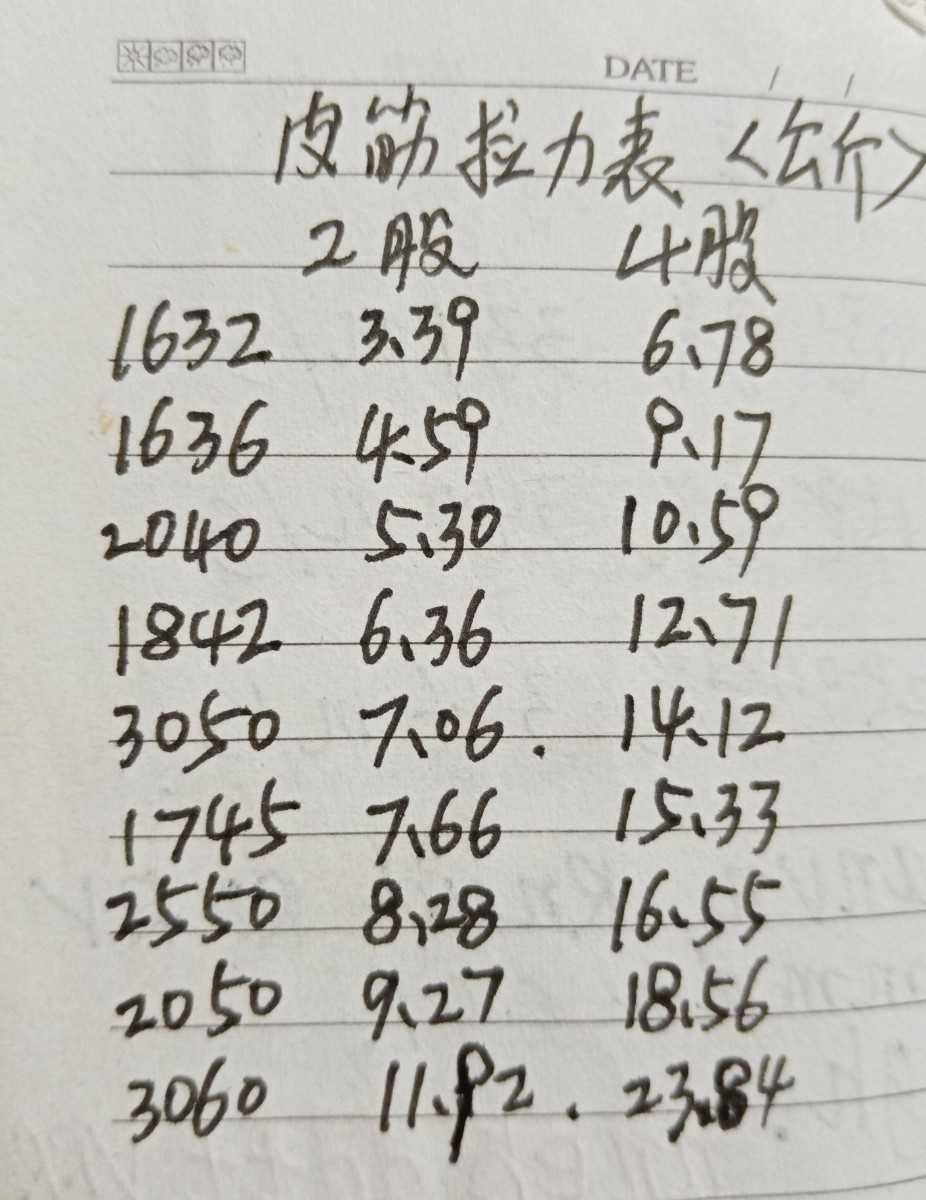 DATE / /
皮筋拉力表〈公斤〉
2股 4股
1632 3.39 6.78
1636 4.59 9.17
2040 5.30 10.59
1842 6.36 12.71
3050 7.06. 14.12
1745 7.66 15.33
2550 8.28 16.55
2050 9.27 18.56
3060 11.92. 23.84